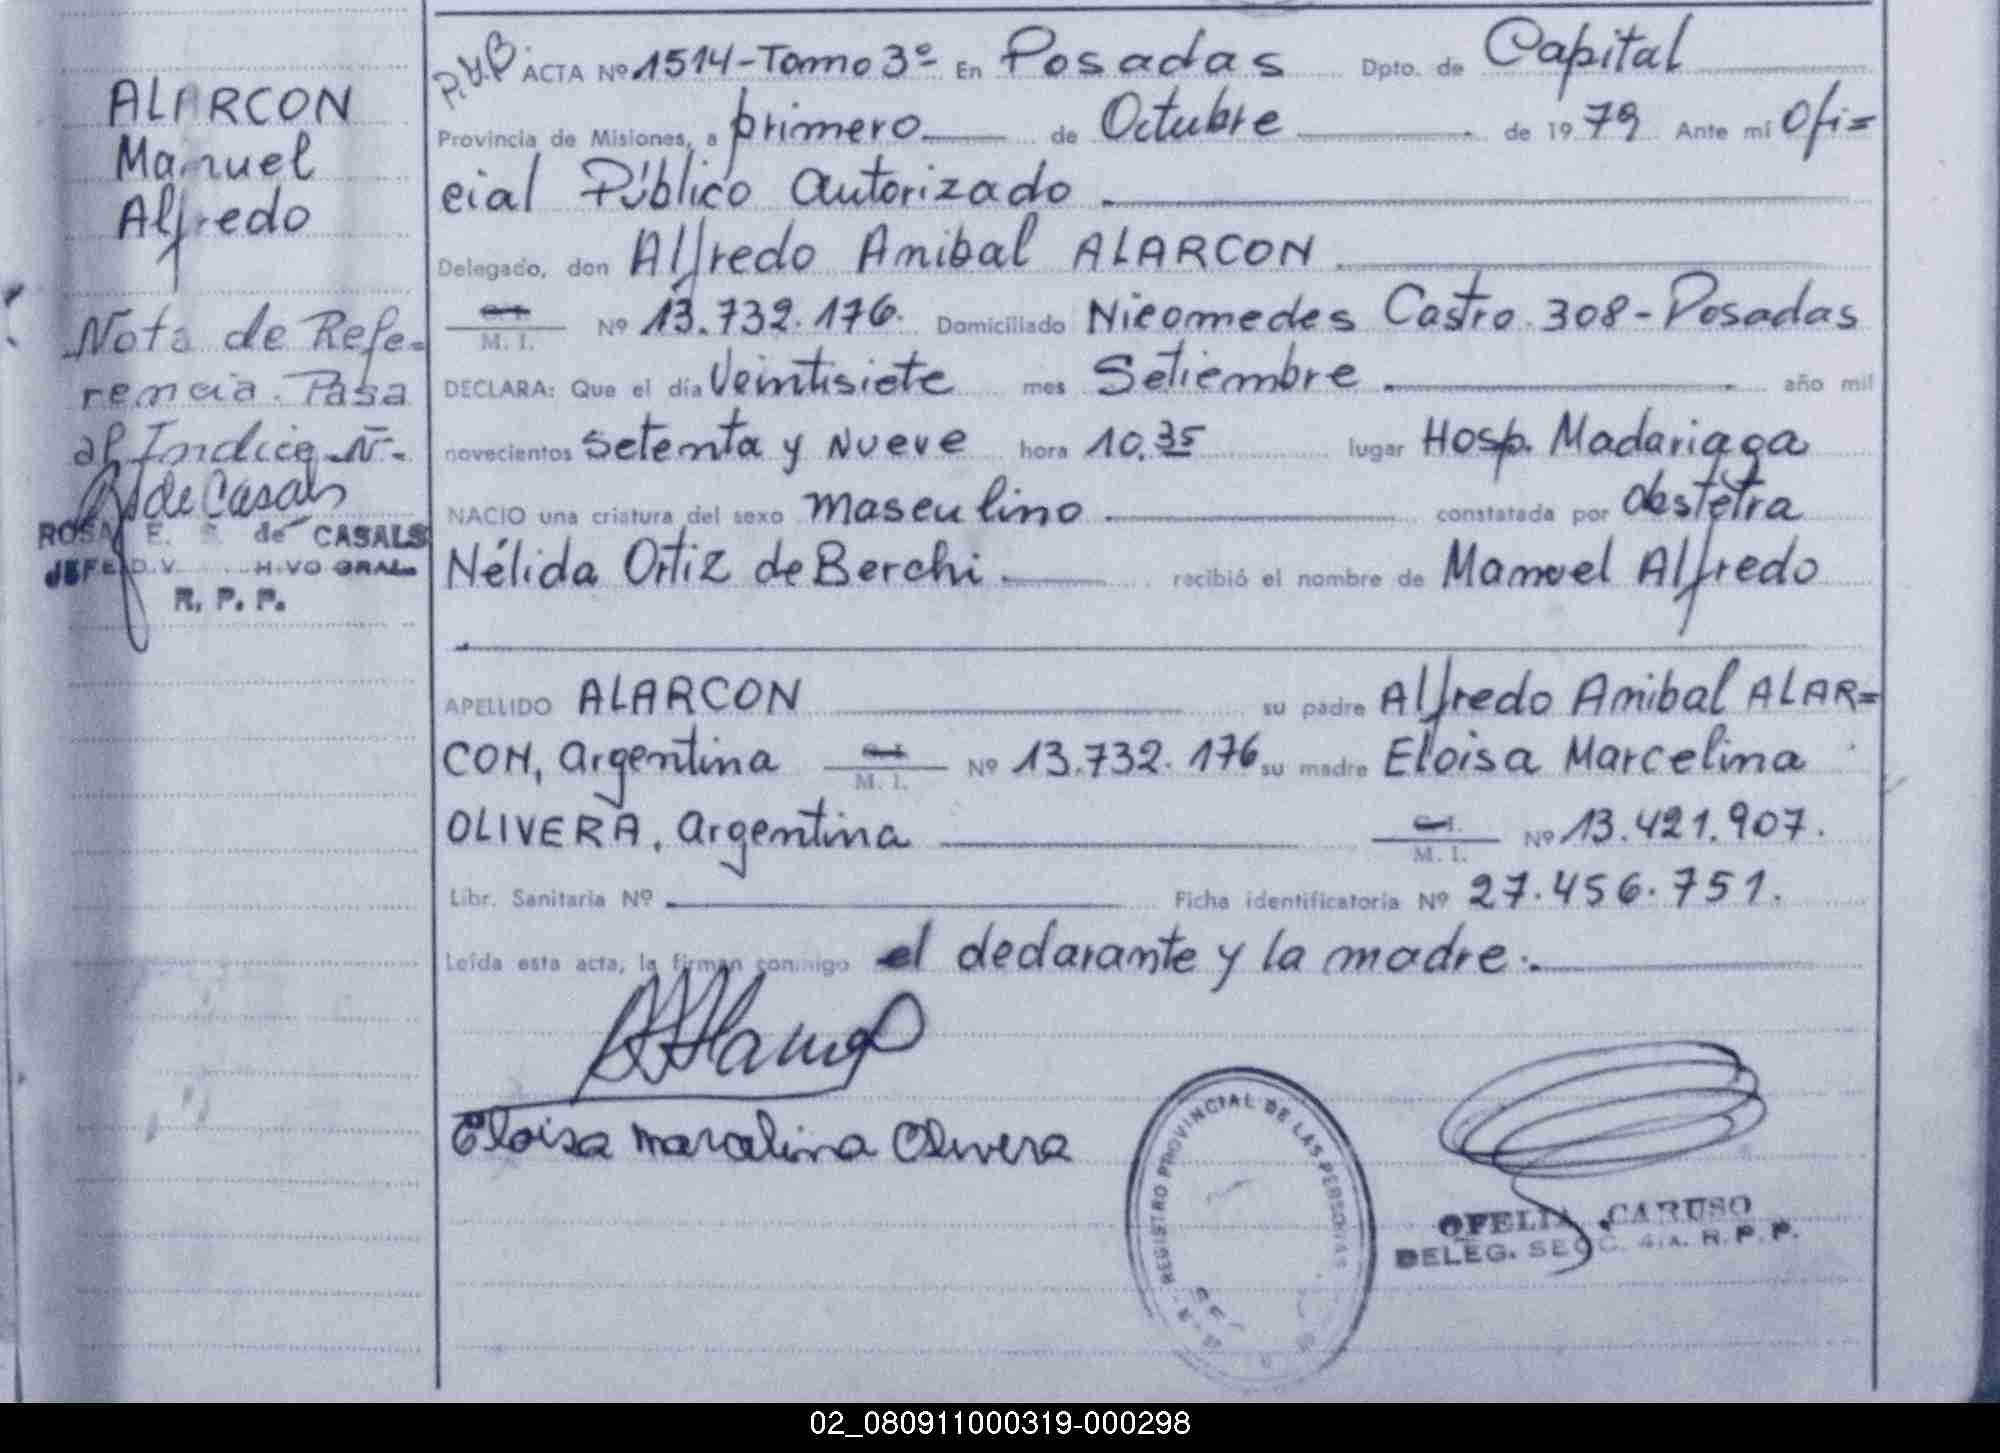 ALARCON
Manuel
Alfredo
Nota de Refe-
rencia. Pasa
al Indice Nº-
de Casals
ROSA E. de CASALS
JEFE DIV. H.VO GRAL.
R. P. P.
ACTA Nº 1514-Tomo 3º- En Posadas Dpto. de Capital
Provincia de Misiones, a primero de Octubre de 1979 Ante mí Ofi=
cial Público autorizado
Delegado, don Alfredo Anibal ALARCON
M. I. Nº 13.732.176. Domiciliado Nicomedes Castro 308-Posadas
DECLARA: Que el día Veintisiete mes Setiembre año mil
novecientos setenta y nueve hora 10,35 lugar Hosp. Madariaga
NACIO una criatura del sexo masculino constatada por obstetra
Nélida Ortiz de Berchi recibió el nombre de Manuel Alfredo
APELLIDO ALARCON su padre Alfredo Anibal ALAR=
CON, argentina M. I. Nº 13.732.176 su madre Eloisa Marcelina
OLIVERA, argentina M. I. Nº 13.421.907.
Libr. Sanitaria Nº Ficha identificatoria Nº 27.456.751.
Leída esta acta, la firman conmigo el declarante y la madre.
Eloisa Marcelina Olivera
REGISTRO PROVINCIAL DE LAS PERSONAS
OFELIA CARUSO
DELEG. SECC. 4ta. R. P. P.
02_080911000319-000298